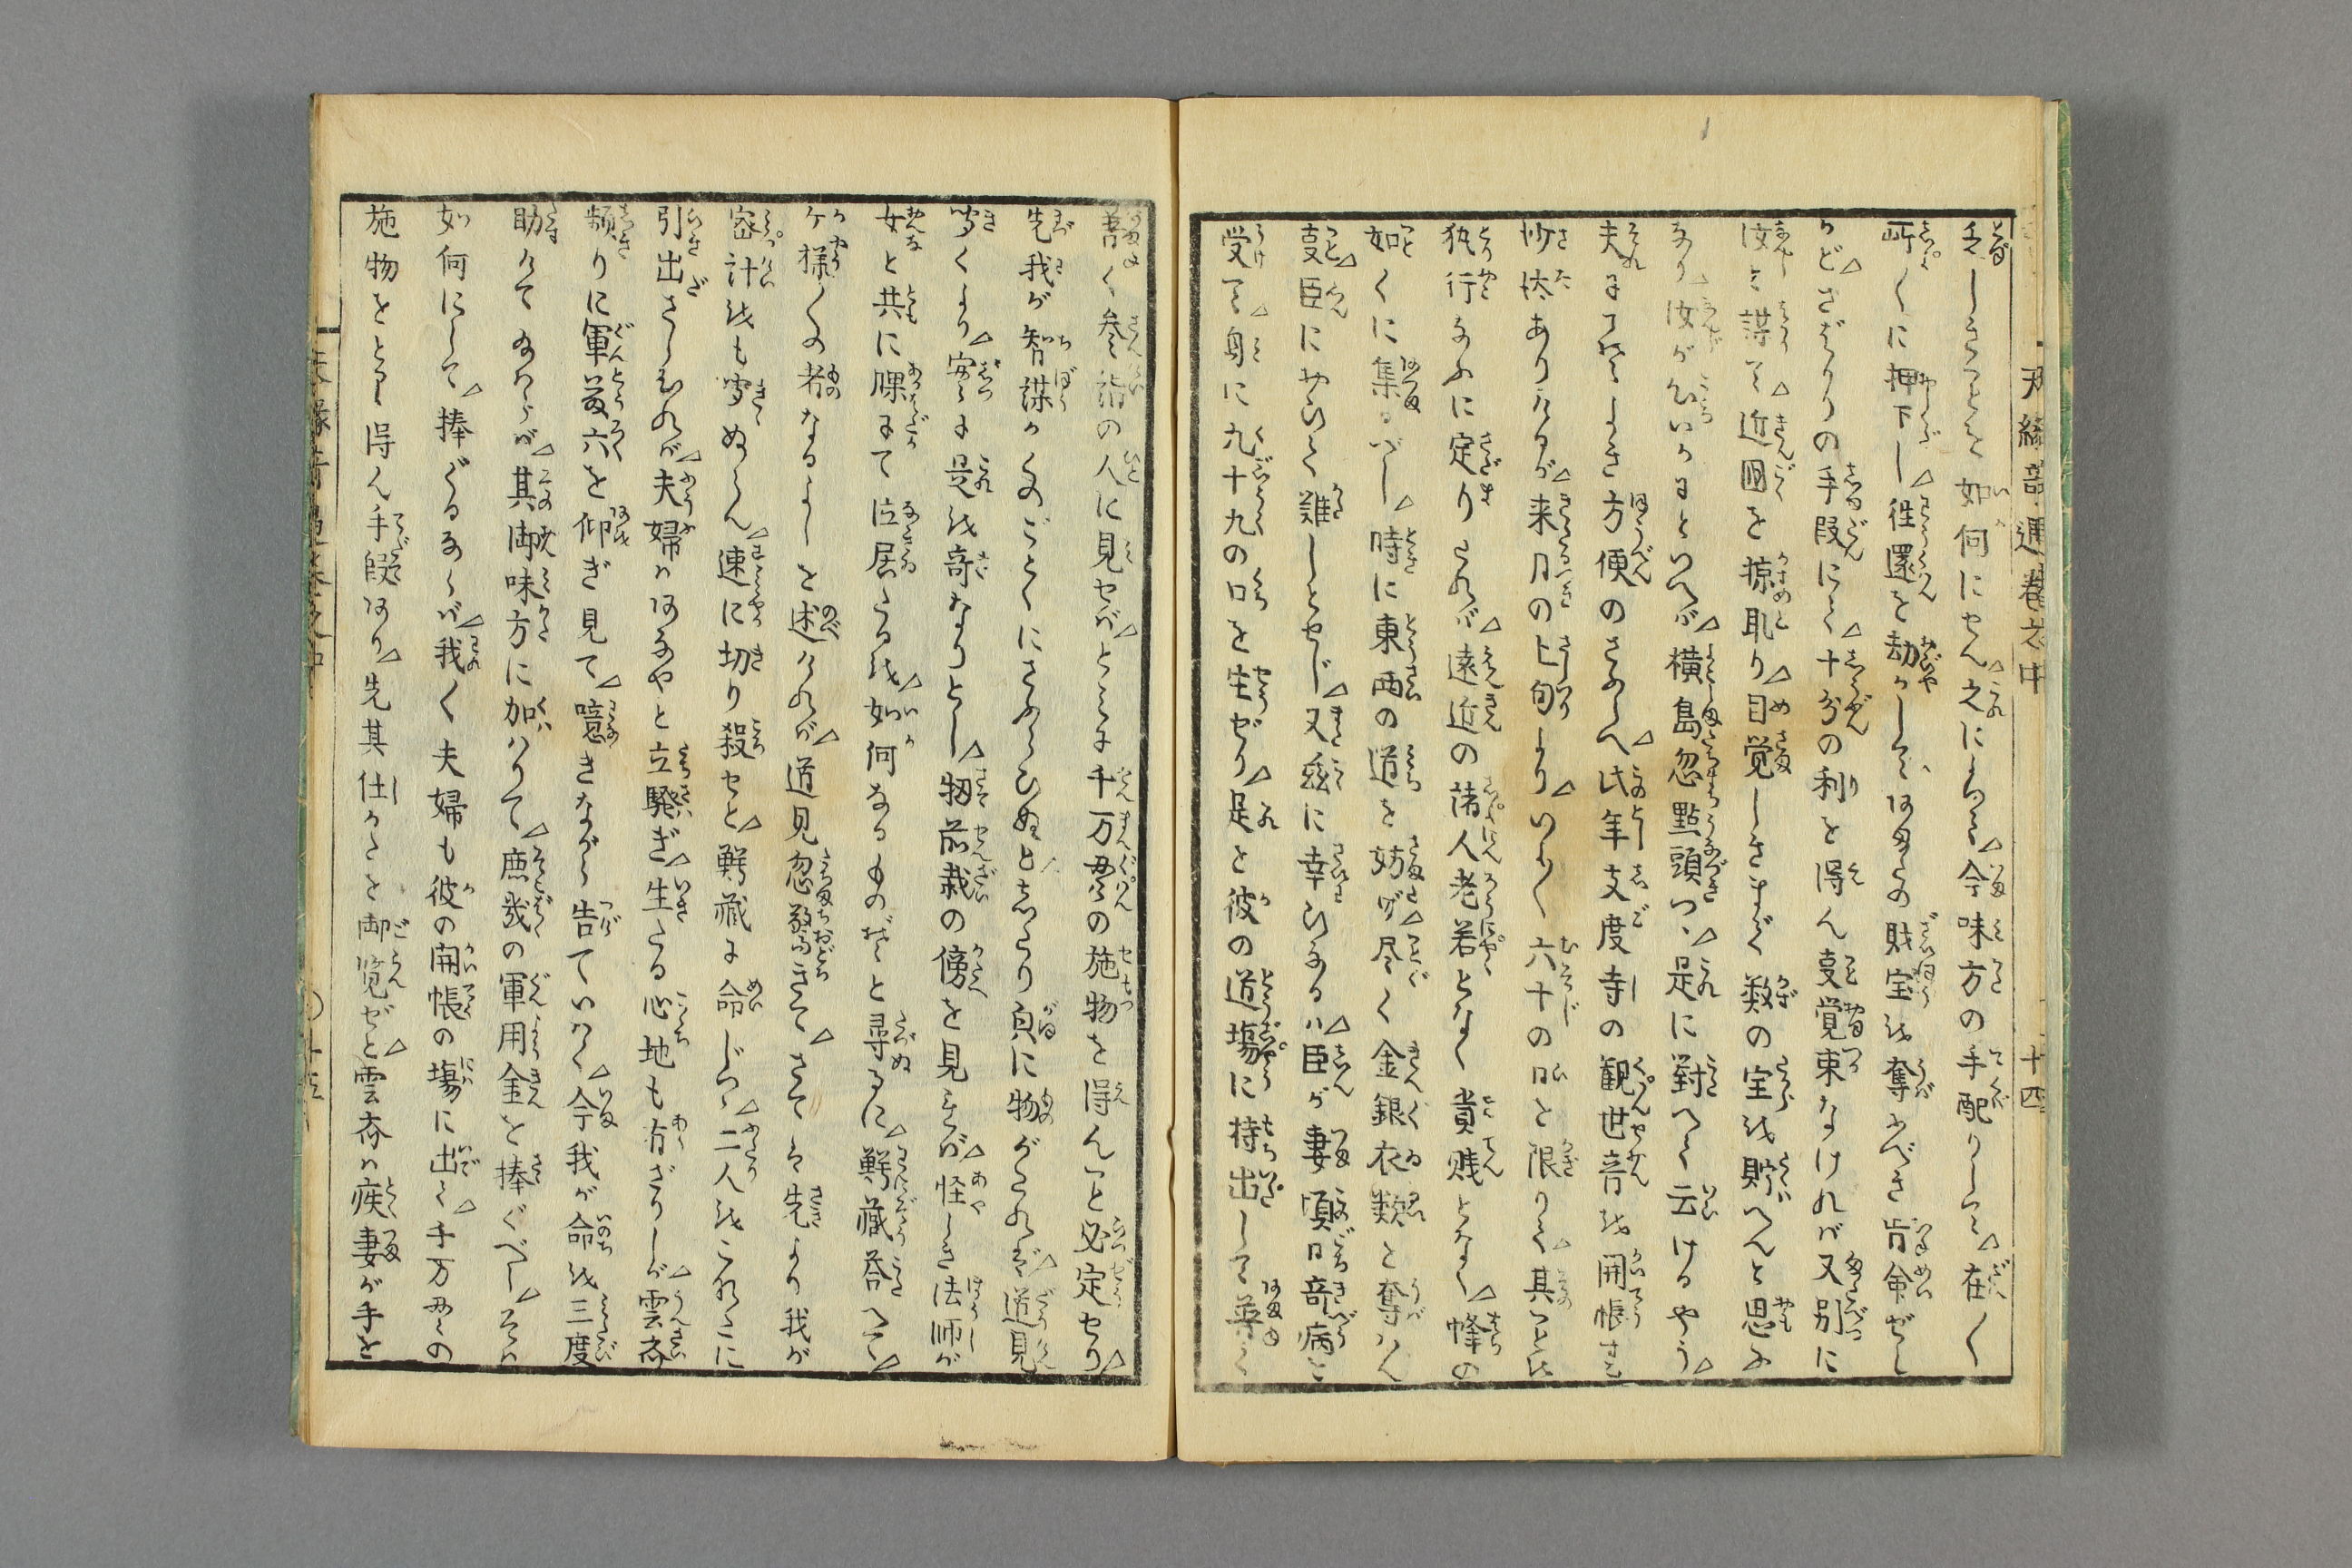 天縁奇遇巻之中
十四
乏しきことを如何にせん△之によつて△今味方の手配りして△在〳〵
所〳〵に押下し△往還を劫かして△あまたの財宝を奪ふべき旨命ぜし
かど△さばかりの手段にて△十分の利を得ん事覚束なければ又別に
汝を謀て△近国を掠取り△目覚しきまで数の宝を貯へんと思ふ
なり△汝が心いかにといへば△横島忽點頭つゝ△是に対へて云けるやう△
夫に了てよき方便のさふらへ△此年支度寺の観世音を開帳する
沙汰ありけるが△来月の上旬より△いはく六十の日と限りて△其ことを
執行なふに定りたれば△遠近の諸人老若となく貴賎となく△蜂の
如くに集るべし△時に東西の道を妨げ△尽く金銀衣類を奪はん
事△臣にわひて難しとせじ△又茲に幸ひなるハ△臣が妻頃日奇病を
受て△身に九十九の口を生ぜり△是を彼の道場に持出して普く
普く参詣の人に見せば△とみに千万貫の施物を得んこと必定せり△
先我が智謀かくのごとくにさふらひぬと△したり貞に物がたれば△道見
聞くより△実に是は奇なりとし△扨前栽の傍を見れば△怪しき法師が
女と共に裸にて泣居たるは△如何なるものぞと尋るに△鰐蔵答へて△
ケ様〳〵の者なるよしを述ければ△道見忽驚きて△さては先より我が
密計をも聞ぬらん△速に切り殺せと△鰐蔵に命じつゝ△二人をこれえに
引出さしむれば△夫婦ハあなやと立騒ぎ△生たる心地も有ざりしが△雲斎
頻りに軍藤六を仰ぎ見て△噫きながら告ていはく△今我が命を三度
助けて給はらば△其御味方に加はりて△庶幾の軍用金を捧ぐべし△そハ
如何にして△捧ぐるならば△我〳〵夫婦も彼の開帳の場に出て△千万貫の
施物をとるし得ん手段あり△先其仕かたを御覧ぜと△雲斎ハ疾妻が手を